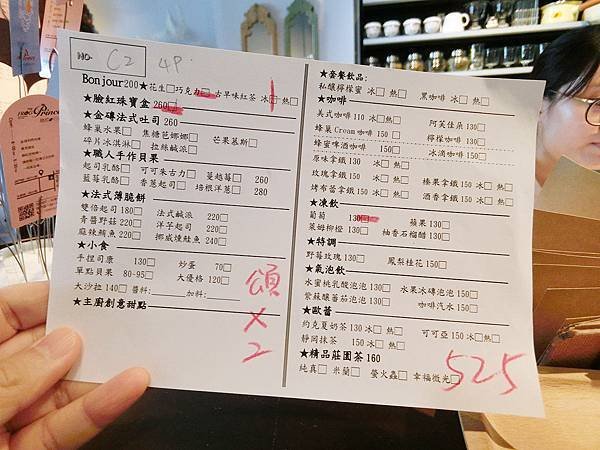 NO. C2 4P
Bonjour200★花生□巧克力□ 古早味紅茶 冰□ 熱□
★臉紅珠寶盒 260□
★金磚法式吐司 260
蜂巢水果□ 焦糖芭娜娜□ 芒果慕斯□
碎片冰淇淋□ 拉絲鹹派□
★職人手作貝果
起司乳酪□ 可可朱古力□ 蔓越莓□ 260
藍莓乳酪□ 香蔥起司□ 培根洋蔥□ 280
★法式薄脆餅
雙倍起司 180□ 法式鹹派 220□
青醬野菇 220□ 洋芋起司 220□
麻辣鮪魚 220□ 挪威燻鮭魚 240□
★小食
手捏司康 130□ 炒蛋 70□
單點貝果 80-95□ 大優格 120□
大沙拉 140□ 醬料: 加料:
★主廚創意甜點
頌
×
2
★套餐飲品:
私釀檸檬蜜 冰□ 熱□ 黑咖啡 冰□ 熱□
★咖啡
美式咖啡 110 冰□ 熱□ 阿芙佳朵 130□
蜂巢 Cream 咖啡 150□ 檸檬咖啡 130□
蜂蜜啤酒咖啡 150□ 冰滴咖啡 150□
原味拿鐵 130 冰□ 熱□
玫瑰拿鐵 150 冰□ 熱□ 榛果拿鐵 150 冰□ 熱□
烤布蕾拿鐵 150 冰□ 熱□ 酒香拿鐵 150 冰□ 熱□
★凍飲
葡萄 130□ 蘋果 130□
萊姆柳橙 130□ 柚香石榴醋 130□
★特調
野莓玫瑰 130□ 鳳梨桂花 150□
★氣泡飲
水蜜桃乳酸泡泡 130□ 水果冰磚泡泡 150□
紫蘇釀蕃茄泡泡 130□ 咖啡汽水 150□
★歐蕾
約克夏奶茶 130 冰□ 熱□ 可可亞 150 冰□ 熱□
靜岡抹茶 150 冰□ 熱□
★精品莊園茶 160
純真□ 米蘭□ 螢火蟲□ 幸福微光□
525